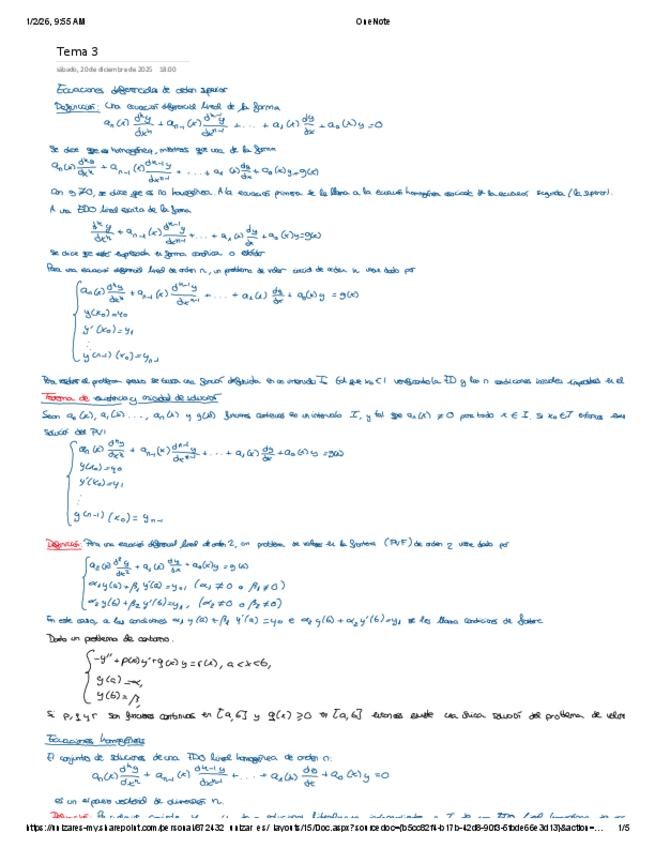 1/2/26, 9:55 AM OneNote
Tema 3
sábado, 20 de diciembre de 2025 18:00
Ecuaciones diferenciales de orden superior
Definición: Una ecuación diferencial lineal de la forma
aₙ(x) dⁿy/dxⁿ + aₙ₋₁(x) dⁿ⁻¹y/dxⁿ⁻¹ + ... + a₁(x) dy/dx + a₀(x)y = 0
Se dice que es homogénea, mientras que una de la forma
aₙ(x) dⁿy/dxⁿ + aₙ₋₁(x) dⁿ⁻¹y/dxⁿ⁻¹ + ... + a₁(x) dy/dx + a₀(x)y = g(x)
con g≠0, se dice que es no homogénea. A la ecuación primera se le llama a la ecuación homogénea asociada de la ecuación segunda (la superior).
A una EDO lineal escrita de la forma
dⁿy/dxⁿ + aₙ₋₁(x) dⁿ⁻¹y/dxⁿ⁻¹ + ... + a₁(x) dy/dx + a₀(x)y = g(x)
se dice que está expresada en forma canónica o estándar
Para una ecuación diferencial lineal de orden n, un problema de valor inicial de orden n viene dado por
aₙ(x) dⁿy/dxⁿ + aₙ₋₁(x) dⁿ⁻¹y/dxⁿ⁻¹ + ... + a₁(x) dy/dx + a₀(x)y = g(x)
y(x₀)=y₀
y'(x₀)=y₁
⋮
y(n-1)(x₀)=yₙ₋₁
Para resolver el problema se busca una función definida en un intervalo I tal que x₀ verificando la ED y las n condiciones iniciales en el
Teorema de existencia y unicidad de solución
Sean a₀(x), a₁(x), ..., aₙ(x) y g(x) funciones continuas en un intervalo I, y tal que aₙ(x) ≠ 0 para todo x ∈ I. Si x₀ ∈ I entonces
solución del PVI
aₙ(x) dⁿy/dxⁿ + aₙ₋₁(x) dⁿ⁻¹y/dxⁿ⁻¹ + ... + a₁(x) dy/dx + a₀(x)y = g(x)
y(x₀)=y₀
y'(x₀)=y₁
⋮
y(n-1)(x₀)=yₙ₋₁
Definición: Para una ecuación diferencial lineal de orden 2, un problema de valores en la frontera (PVF) de orden 2 viene dado por
a₂(x) d²y/dx² + a₁(x) dy/dx + a₀(x)y = g(x)
α₁y(a)+β₁y'(a)=y₀, (α₁≠0 o β₁≠0)
α₂y(b)+β₂y'(b)=y₁, (α₂≠0 o β₂≠0)
En este caso, a las condiciones α₁y(a)+β₁y'(a)=y₀ e α₂y(b)+α₂y'(b)=y₁ se les llama condiciones de
Dado un problema de contorno.
-y''+p(x)y'+q(x)y=r(x), a<x<b,
y(a)=α,
y(b)=β,
Si p, q y r son funciones continuas en [a,b] y q(x)≥0 en [a,b] entonces existe una única solución del problema de valor
Ecuaciones homogéneas
El conjunto de soluciones de una EDO lineal homogénea de orden n:
aₙ(x) dⁿy/dxⁿ + aₙ₋₁(x) dⁿ⁻¹y/dxⁿ⁻¹ + ... + a₁(x) dy/dx + a₀(x)y = 0
es un espacio vectorial de dimensión n.
1/5